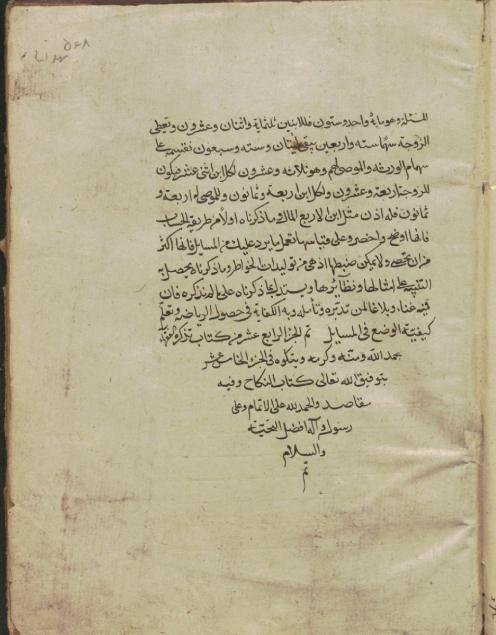 المسئلة وهو مائة واحد وستون فللابنين ثلثماية واثنان وعشرون وتعطى
الزوجة سهامها ستة واربعين يبقى مايتان وستة وسبعون فتقسمه على
سهام الورثة والموصى لهم وهو ثلاثة وعشرون لكل ابن اثنى عشر فيكون
للزوجة اربعة وعشرون ولكل ابن اربعة وثمانون وللموصى له اربعة و
ثمانون فله اذن مثل ابن الا ربع المال وما ذكرناه اولا من طريقة الحساب
فانها اوضح واخصر وعلى قياسها تعمل ما يرد عليك من المسايل فانها اكثر
من ان تحصى ولا يمكن ضبطها اذ هي من توليدات الخواطر وما ذكرناه يحصل به
التنبيه على امثالها ونظائرها ويستدل بما ذكرناه على ما لم نذكره فان
فيه غناء وبلاغا لمن تدبره وتأمله وبه الكفاية في حصول الرياضة وتعلم
كيفية الوضع في المسايل تم الجزء الرابع عشر من كتاب تذكرة الفقهاء
بحمد الله ومنه وكرمه ويتلوه في الجزء الخامس عشر
بتوفيق الله تعالى كتاب النكاح وفيه
مقاصد والحمد لله على الاتمام وعلى
رسوله وآله افضل التحية
والسلام
تم